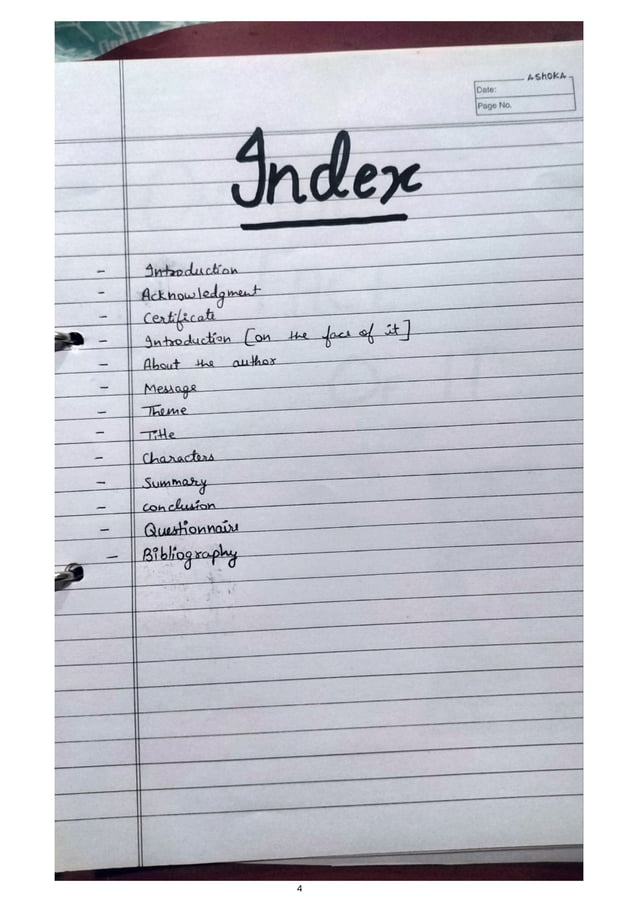 ASHOKA
Date:
Page No.
Index
- Introduction
- Acknowledgment
- Certificate
- Introduction [on the face of it]
- About the author
- Message
- Theme
- Title
- Characters
- Summary
- conclusion
- Questionnaire
- Bibliography
4